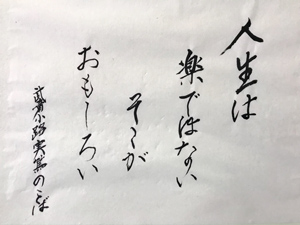 人生は
楽ではない
そこが
おもしろい
武者小路実篤のことば